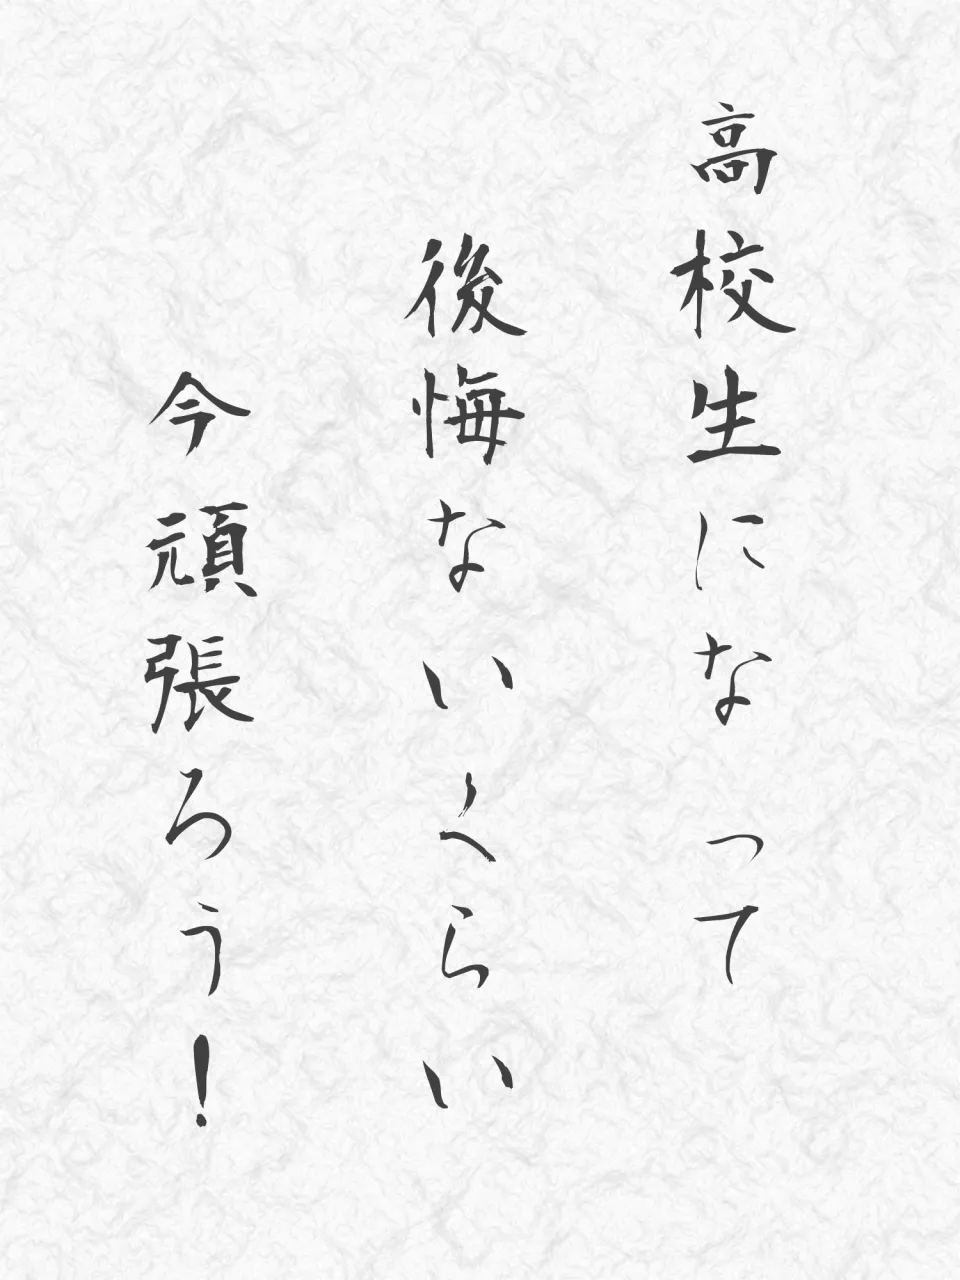 高校生になって
後悔ないくらい
今頑張ろう!